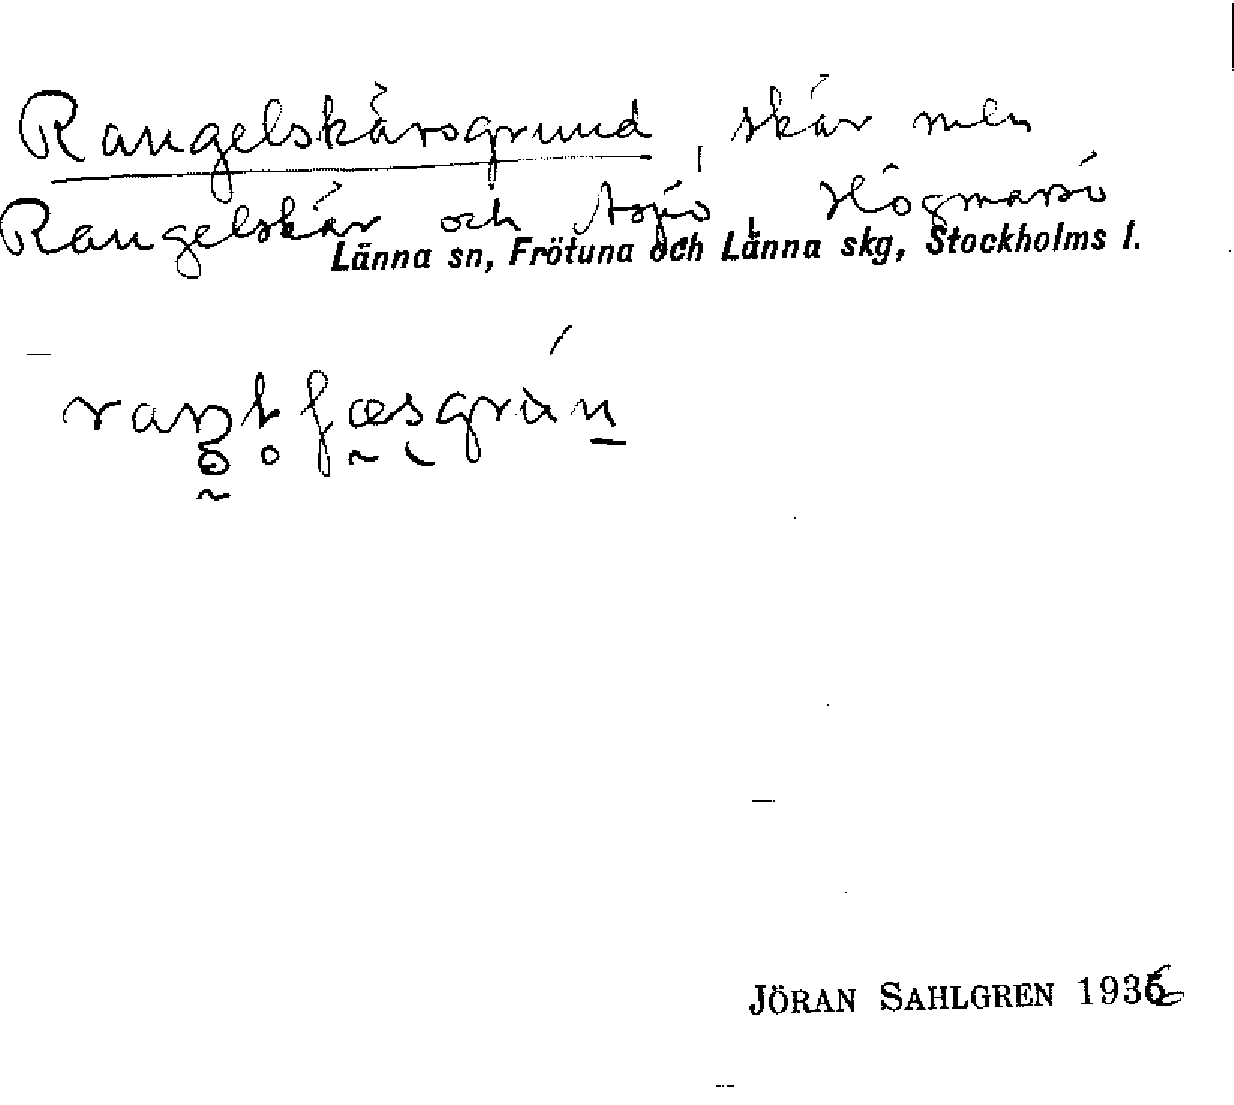 Rangelskärsgrund, skär mln
Rangelskär och Aspö, Högmarsö
Länna sn, Frötuna och Länna skg, Stockholms l.
JÖRAN SAHLGREN 1936